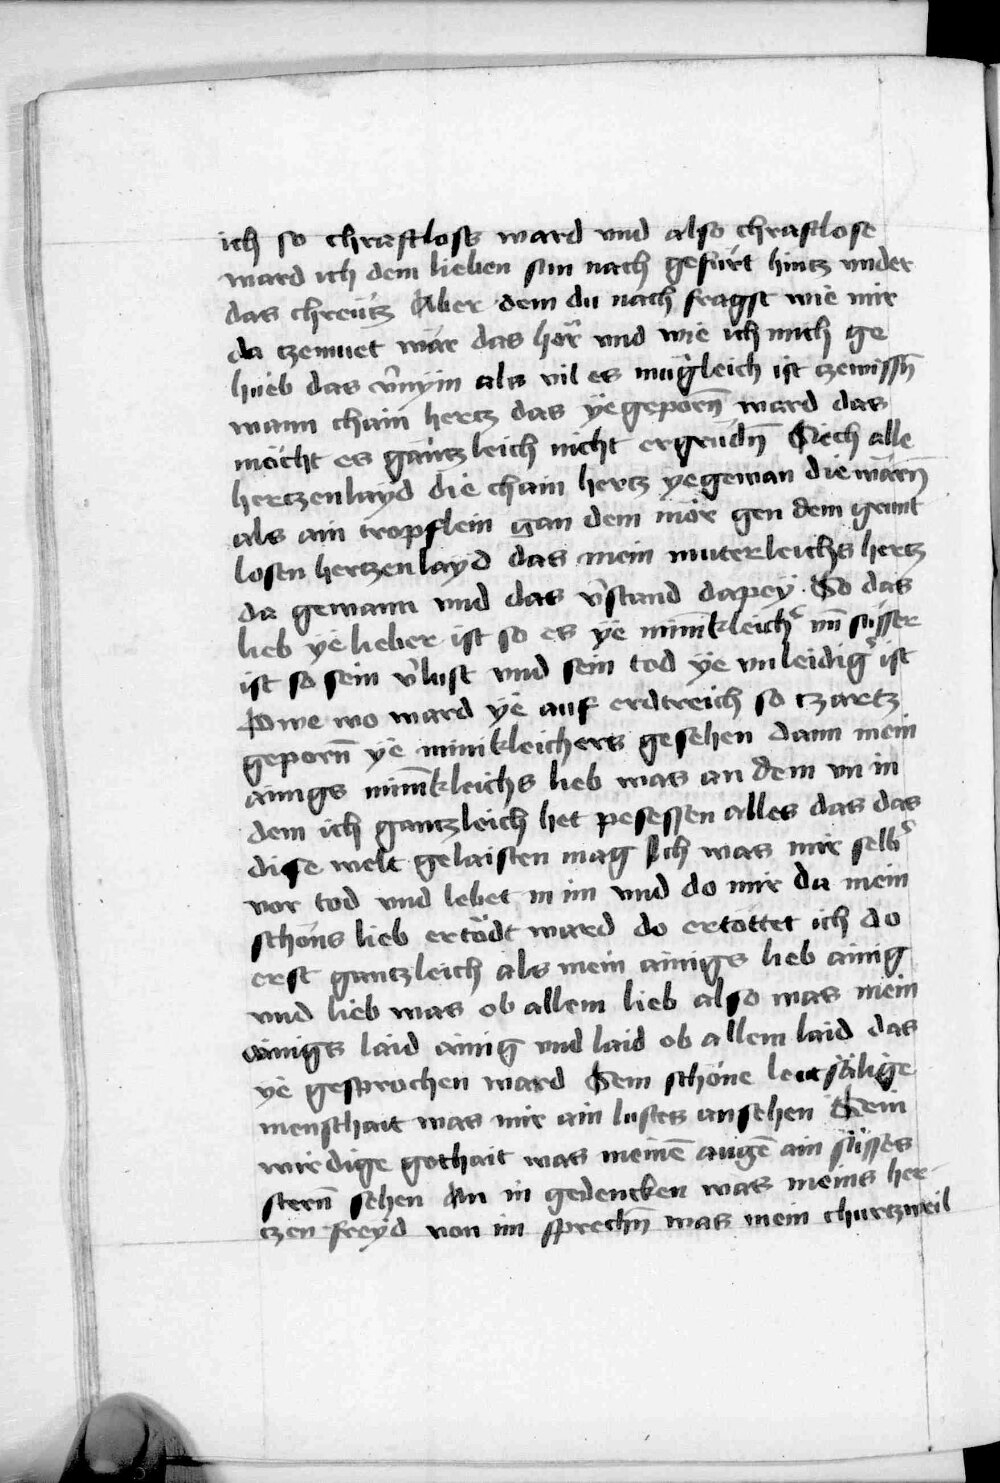 ich so chraftloss ward vnd also chraftlose
ward ich dem lieben sun nach gefürt hintz vnder
das chreütz Aber dem du nach fragst wie mir
da tzemuet wär das hör vnd wie ich mich ge
hueb das v̄nÿm als vil es mügleich ist tzewissn̄
wann chain hertz das ÿe geporn̄ ward das
möcht es gäntzleich nicht ergrüdn̄ Siech alle
hertzenlayd die chain hertz ye gewan die wärn̄
als ain tropflein gan dem mör gen dem grunt
losen hertzenlayd das mein muterleichs hertz
da gewann vnd das v̄stand dapeÿ So das
lieb ÿe lieber ist so es ÿe minikleich' vn̄ süsser
ist so sein v̄lust vnd sein tod ÿe vnleidig' ist
Owe wo ward ÿe auf erdtreich so tzartz
geporn̄ ÿe minikleichers gesehen dann mein
ainigs minikleichs lieb was an dem vn in
dem ich gantzleich het pesessen alles das das
dise welt gelaisten mag Ich was mir selb'
vor tod vnd lebet in im vnd do mir da mein
schöns lieb ertödt ward do ertöttet ich do
erst gantzleich als mein ainigs lieb ainig
vnd lieb was ob allem lieb also was mein
ainigs laid ainig vnd laid ob allem laid das
ÿe gesprochen ward Sein schöne leutsälige
menschait was mir ain lustz ansehen Sein
wirdige gothait was meinē augē ain süsses
stern̄ sehen An in gedencken was meins her
tzen freÿd von im sprechn̄ was mein churtzweil